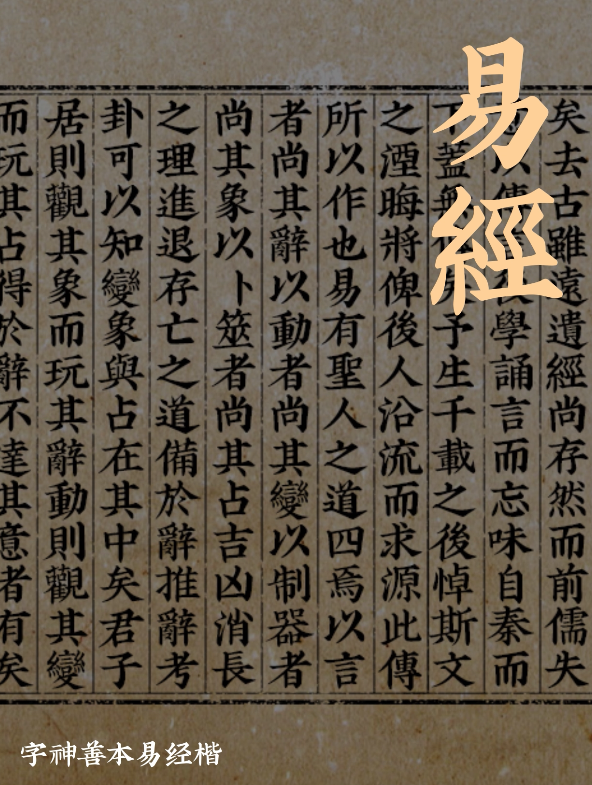 易經
矣去古雖遠遺經尚存然而前儒失
以傳後學誦言而忘味自秦而
下蓋無予生千載之後悼斯文
之湮晦將俾後人沿流而求源此傳
所以作也易有聖人之道四焉以言
者尚其辭以動者尚其變以制器者
尚其象以卜筮者尚其占吉凶消長
之理進退存亡之道備於辭推辭考
卦可以知變象與占在其中矣君子
居則觀其象而玩其辭動則觀其變
而玩其占得於辭不達其意者有矣
字神善本易经楷